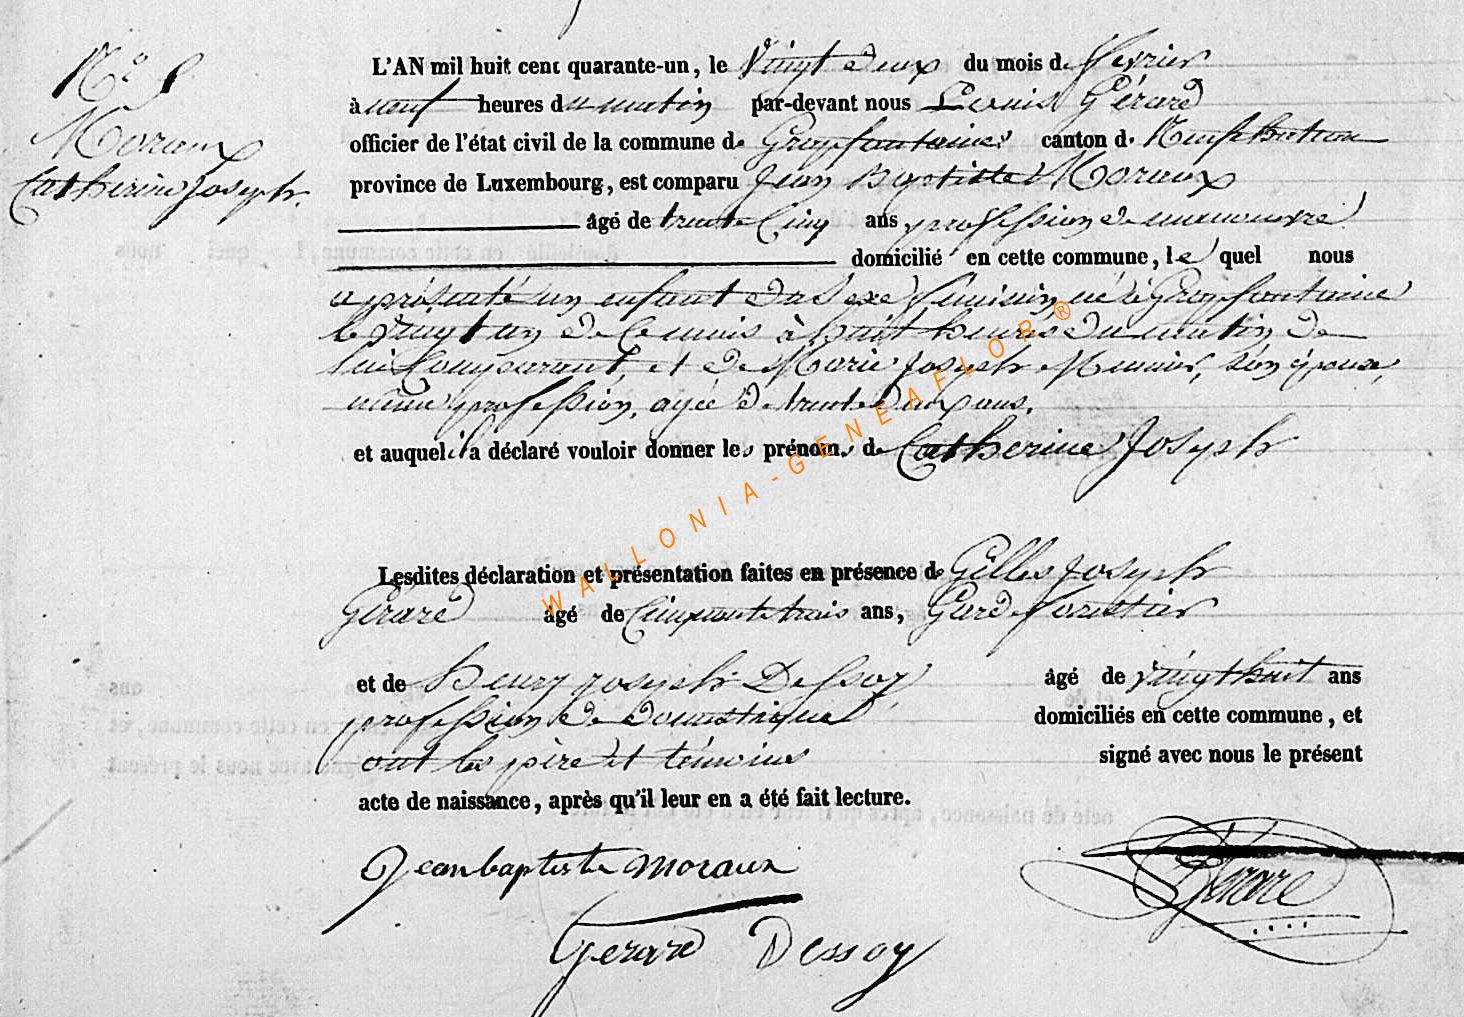 N° 5
Moraux
Catherine Joseph.
L'AN mil huit cent quarante-un, le Vingt deux du mois de fevrier
à neuf heures du matin par-devant nous Louis Gérard
officier de l'état civil de la commune de Grapfontaine canton de Neufchateau
province de Luxembourg, est comparu Jean Baptiste Moraux
âgé de trente Cinq ans, profession de manoeuvre
domicilié en cette commune, le quel nous
a présenté un enfant du sexe féminin, né à Grapfontaine
le vingt un de Ce mois à huit heures du matin de
lui Comparant, et de Marie Joseph Meunier, son épouse,
même profession, agée de trente deux ans.
et auquel il a déclaré vouloir donner les prénoms de Catherine Joseph
Lesdites déclaration et présentation faites en présence de Gilles Joseph
Gérard âgé de Cinquante trois ans, Garde forestier
et de henry joseph Dessoy, âgé de vingt huit ans
profession de domestique domiciliés en cette commune, et
ont les père et témoins signé avec nous le présent
acte de naissance, après qu'il leur en a été fait lecture.
Jean baptiste Moraux
Gérard
Gerard Dessoy
WALLONIA-GENEAFLOR ®